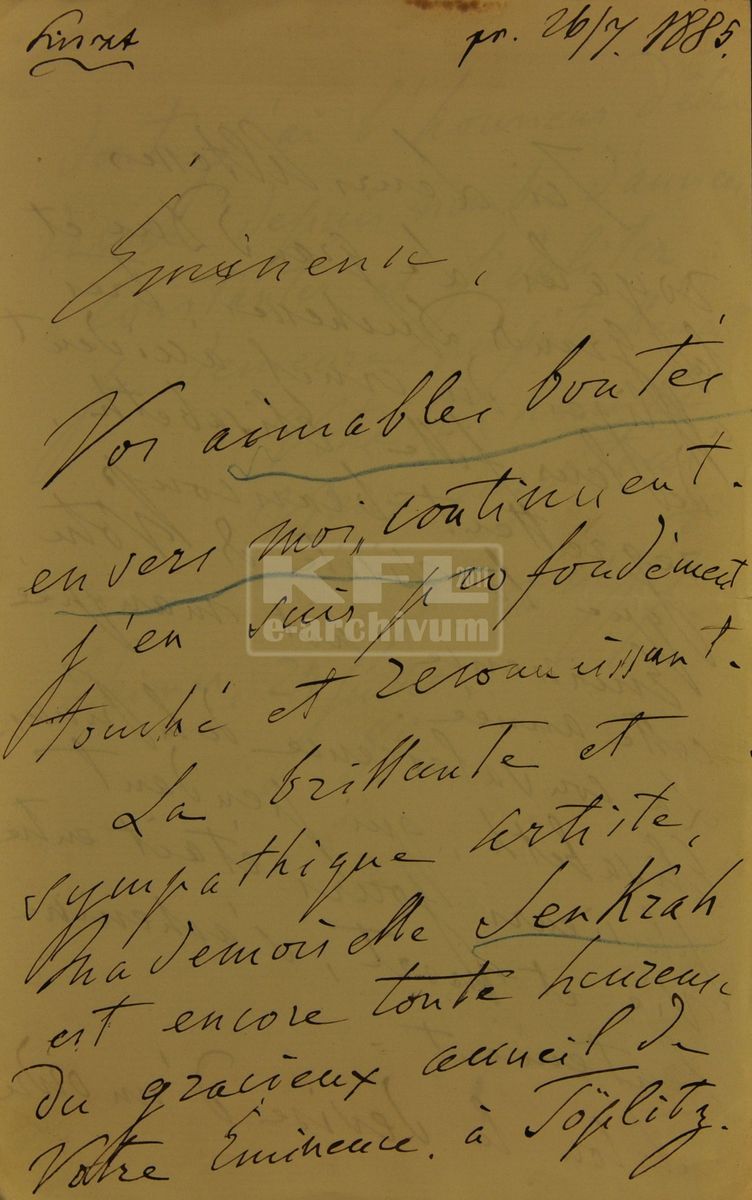 pr. 26/7. 1885.
Éminence,
Vos aimables bontés
envers moi, continuent.
j'en suis profondément
touché et reconnaissant.
La brillante et
sympathique artiste,
Mademoiselle Senkrah
est encore toute heureuse
du gracieux accueil de
Votre Éminence. à Töplitz.
KFL
e-archivum